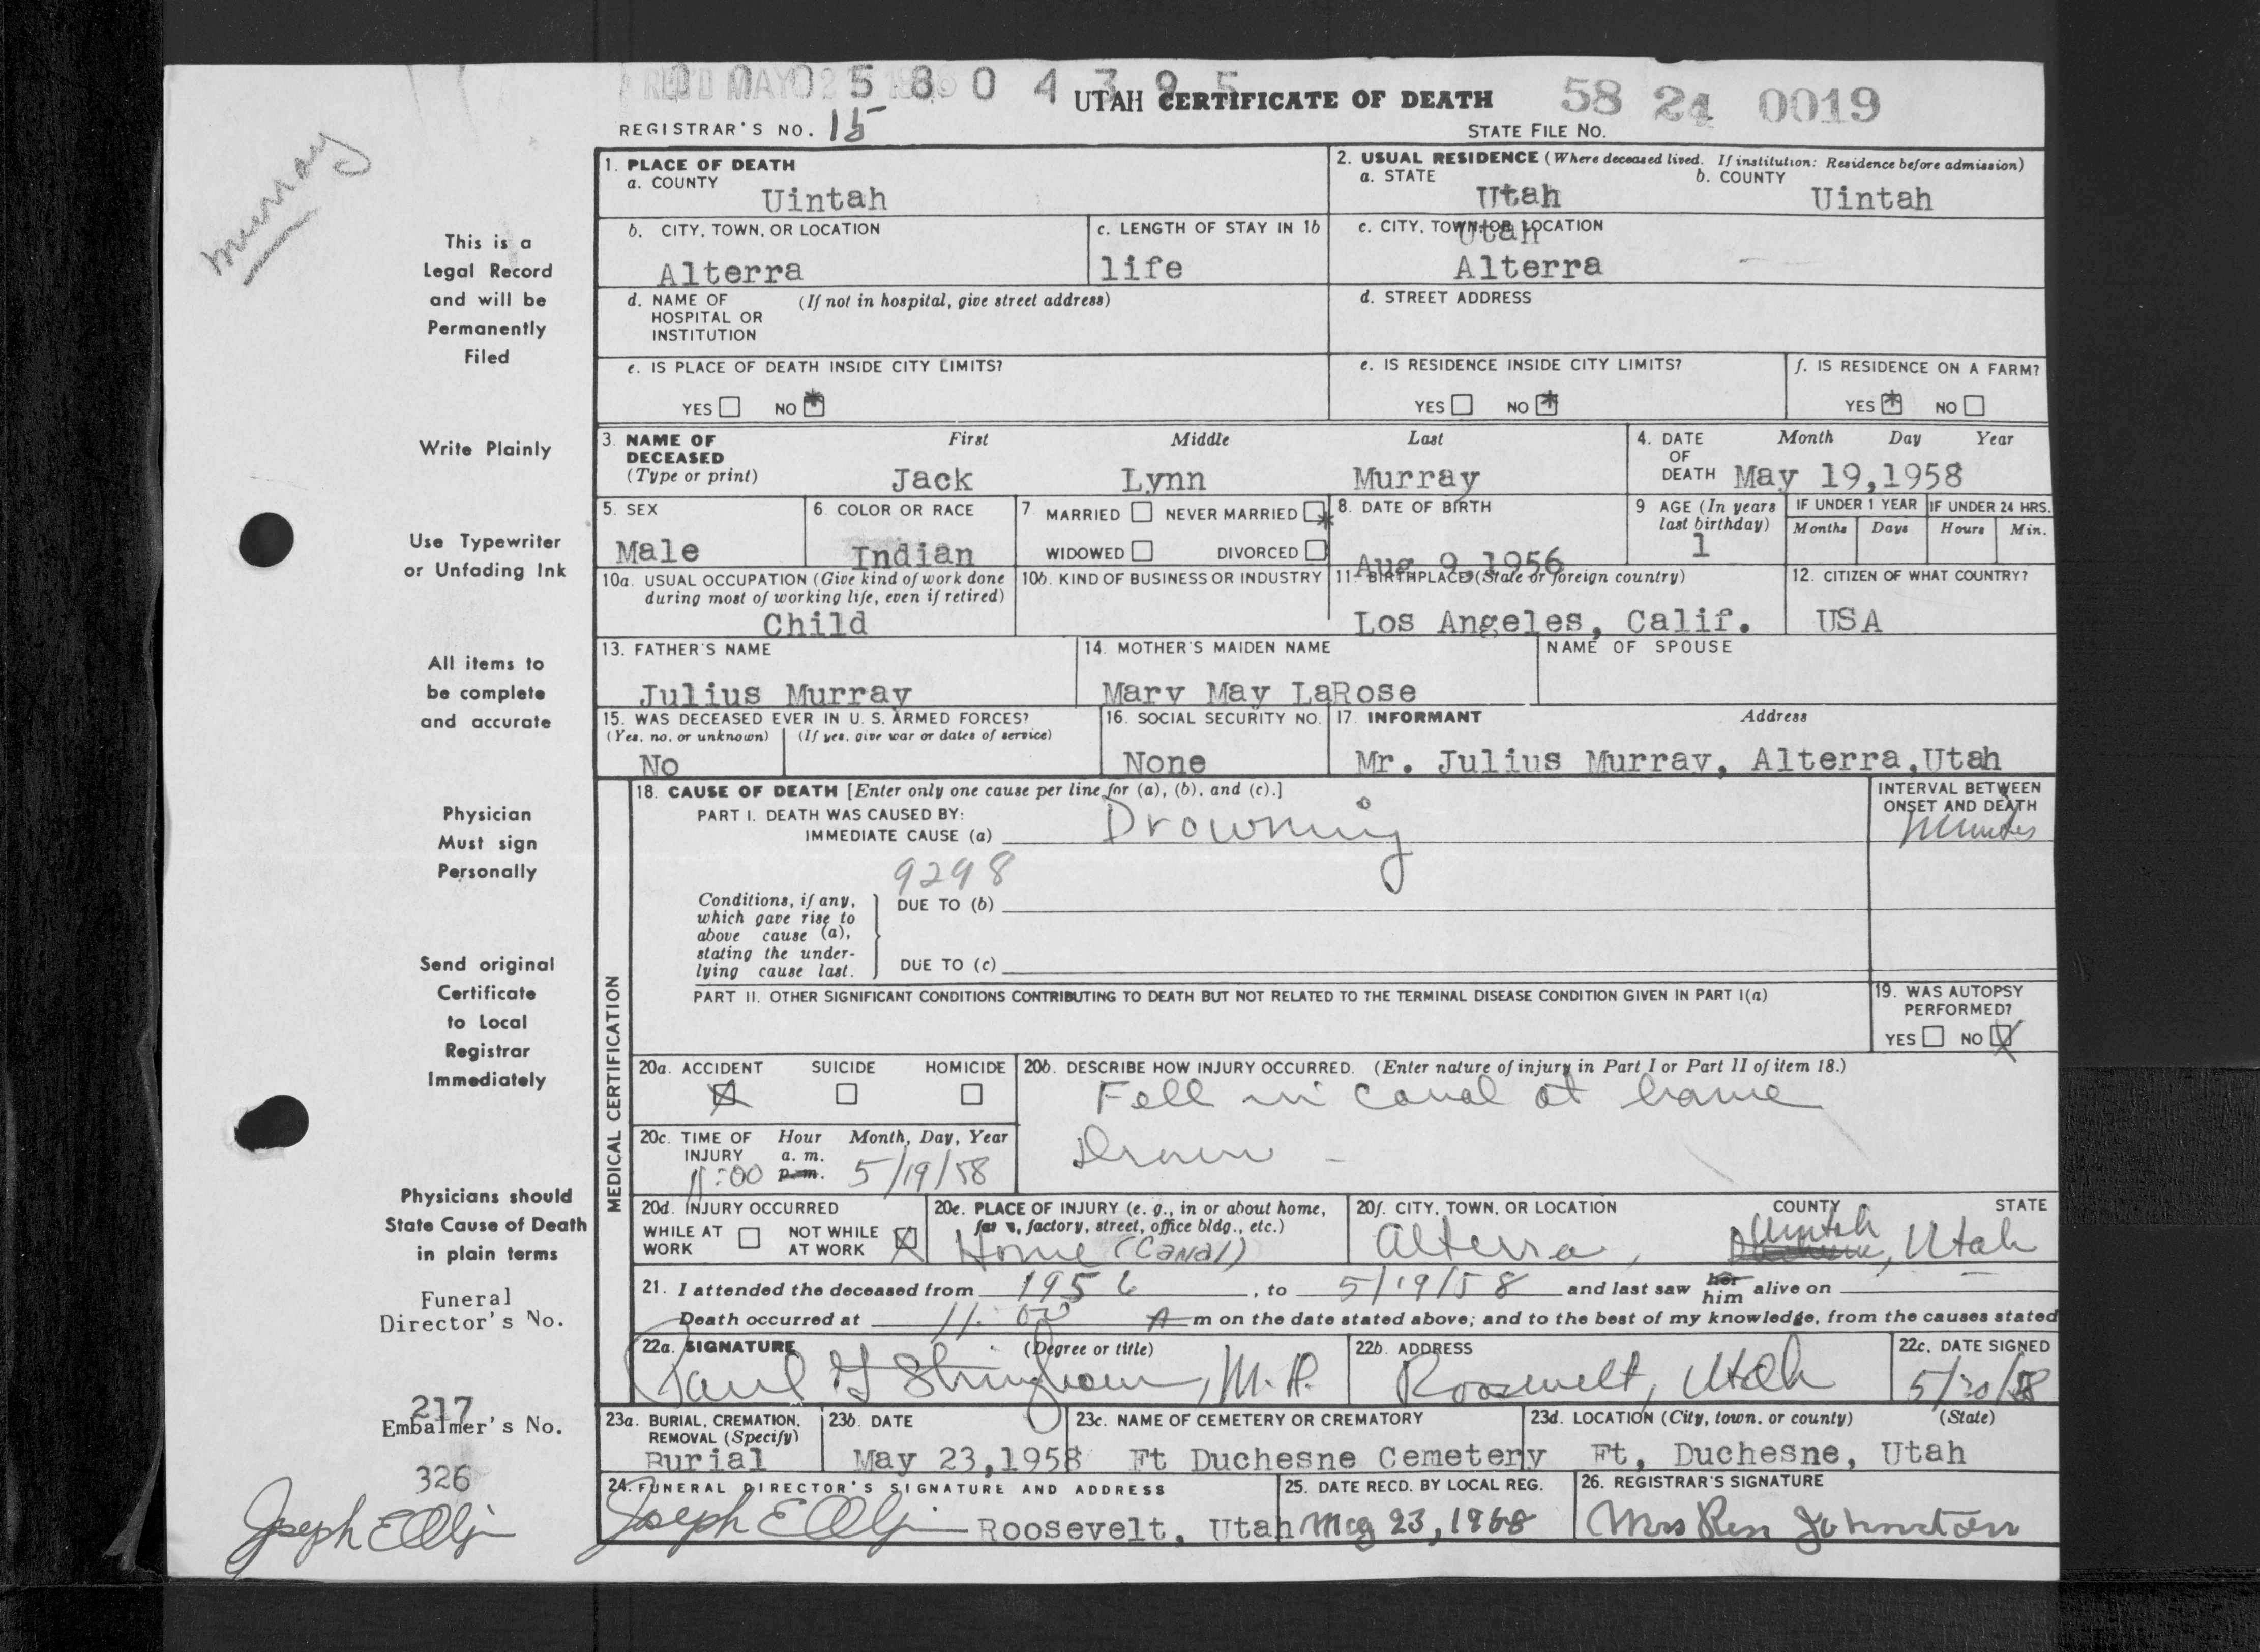 0005804395
REC'D MAY
UTAH CERTIFICATE OF DEATH
58 24 0019
REGISTRAR'S NO. 15
STATE FILE NO.
Murray
This is a
Legal Record
and will be
Permanently
Filed
Write Plainly
Use Typewriter
or Unfading Ink
All items to
be complete
and accurate
Physician
Must sign
Personally
Send original
Certificate
to Local
Registrar
Immediately
Physicians should
State Cause of Death
in plain terms
Funeral
Director's No.
217
Embalmer's No.
326
1. PLACE OF DEATH
a. COUNTY
Uintah
2. USUAL RESIDENCE (Where deceased lived. If institution: Residence before admission)
a. STATE b. COUNTY
Utah Uintah
b. CITY, TOWN, OR LOCATION
Alterra
c. LENGTH OF STAY IN 1b
life
c. CITY, TOWN, OR LOCATION
Utah
Alterra
d. NAME OF (If not in hospital, give street address)
HOSPITAL OR
INSTITUTION
d. STREET ADDRESS
e. IS PLACE OF DEATH INSIDE CITY LIMITS?
YES NO *
e. IS RESIDENCE INSIDE CITY LIMITS?
YES NO *
f. IS RESIDENCE ON A FARM?
YES * NO
3. NAME OF First Middle Last
DECEASED
(Type or print) Jack Lynn Murray
4. DATE Month Day Year
OF
DEATH May 19,1958
5. SEX
Male
6. COLOR OR RACE
Indian
7. MARRIED NEVER MARRIED *
WIDOWED DIVORCED
8. DATE OF BIRTH
Aug 9,1956
9 AGE (In years
last birthday)
1
IF UNDER 1 YEAR
Months Days
IF UNDER 24 HRS.
Hours Min.
10a. USUAL OCCUPATION (Give kind of work done
during most of working life, even if retired)
Child
10b. KIND OF BUSINESS OR INDUSTRY
11. BIRTHPLACE (State or foreign country)
Los Angeles, Calif.
12. CITIZEN OF WHAT COUNTRY?
USA
13. FATHER'S NAME
Julius Murray
14. MOTHER'S MAIDEN NAME
Mary May LaRose
NAME OF SPOUSE
15. WAS DECEASED EVER IN U. S. ARMED FORCES?
(Yes, no, or unknown) (If yes, give war or dates of service)
No
16. SOCIAL SECURITY NO.
None
17. INFORMANT Address
Mr. Julius Murray, Alterra,Utah
MEDICAL CERTIFICATION
18. CAUSE OF DEATH [Enter only one cause per line for (a), (b), and (c).]
PART I. DEATH WAS CAUSED BY:
IMMEDIATE CAUSE (a) Drowning
INTERVAL BETWEEN
ONSET AND DEATH
Minutes
9298
Conditions, if any,
which gave rise to
above cause (a),
stating the under-
lying cause last.
DUE TO (b)
DUE TO (c)
PART II. OTHER SIGNIFICANT CONDITIONS CONTRIBUTING TO DEATH BUT NOT RELATED TO THE TERMINAL DISEASE CONDITION GIVEN IN PART I(a)
19. WAS AUTOPSY
PERFORMED?
YES NO X
20a. ACCIDENT SUICIDE HOMICIDE
X
20b. DESCRIBE HOW INJURY OCCURRED. (Enter nature of injury in Part I or Part II of item 18.)
Fell in canal at home
20c. TIME OF Hour Month, Day, Year
INJURY a. m.
11:00 p.m. 5/19/58
20d. INJURY OCCURRED
WHILE AT NOT WHILE X
WORK AT WORK
20e. PLACE OF INJURY (e. g., in or about home,
farm, factory, street, office bldg., etc.)
Home (Canal)
20f. CITY, TOWN, OR LOCATION COUNTY STATE
Alterra, Uintah, Utah
21. I attended the deceased from 1956, to 5/19/58 and last saw her him alive on
Death occurred at 11:00 A m on the date stated above; and to the best of my knowledge, from the causes stated
22a. SIGNATURE (Degree or title)
Paul G Stringham, M.D.
22b. ADDRESS
Roosevelt, Utah
22c. DATE SIGNED
5/20/58
23a. BURIAL, CREMATION,
REMOVAL (Specify)
Burial
23b. DATE
May 23,1958
23c. NAME OF CEMETERY OR CREMATORY
Ft Duchesne Cemetery
23d. LOCATION (City, town, or county) (State)
Ft, Duchesne, Utah
24. FUNERAL DIRECTOR'S SIGNATURE AND ADDRESS
Roosevelt, Utah
25. DATE RECD. BY LOCAL REG.
May 23, 1958
26. REGISTRAR'S SIGNATURE
Mrs Johnston